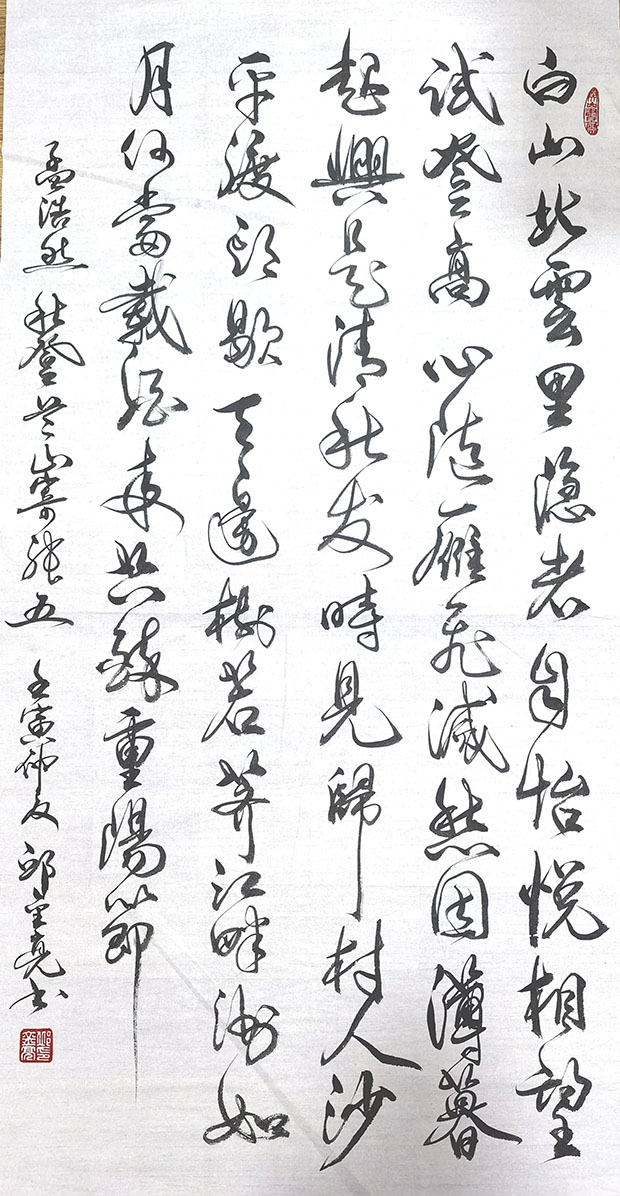 白山北雲里隐者自怡悦相望
试登高心随雁飛滅愁因薄暮
起興是清秋发時見歸村人沙
平渡頭歇天邊樹若荠江畔洲如
月何當載酒来共醉重陽節
孟浩然 秋登兰山寄张五 壬寅仲夏 邱亮书